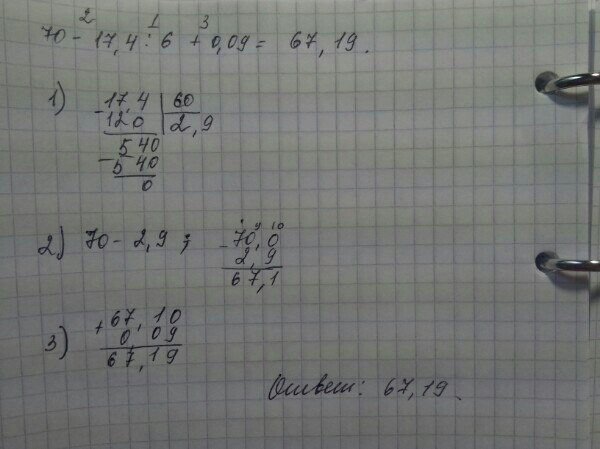 2 1 3
70 - 17,4 : 6 + 0,09 = 67,19.
1) - 17,4 | 60
120 | 2,9
540
- 540
0
2) 70 - 2,9 ;
9 10
- 70,0
2,9
67,1
3) + 67,10
0,09
67,19
Ответ: 67,19.